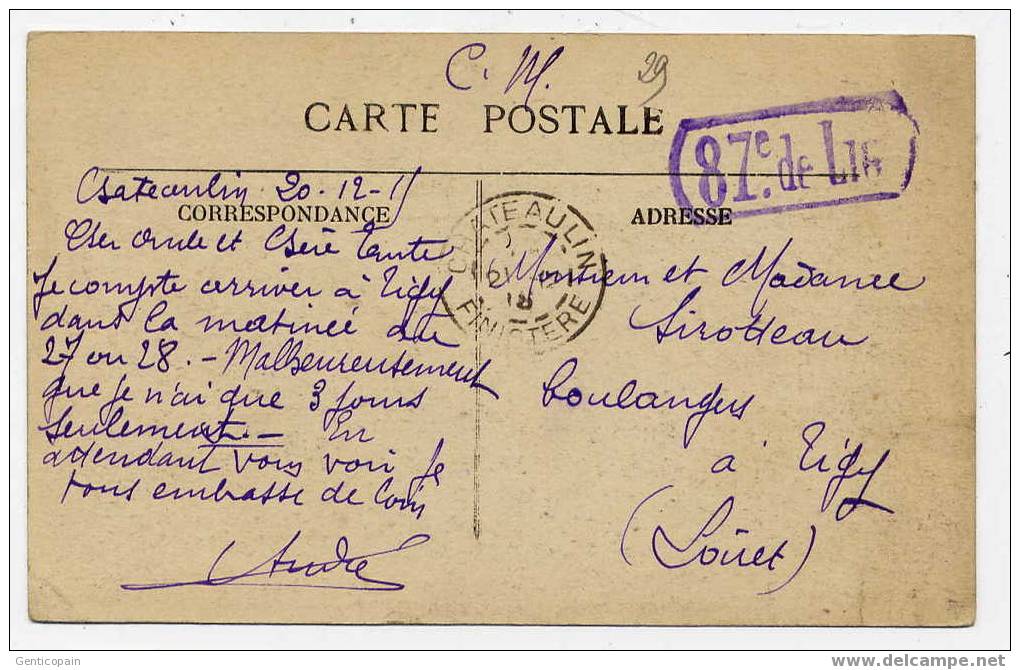 C. M. 29
CARTE POSTALE
87e. de Lig
Chateaulin 20-12-15
CORRESPONDANCE
Cher Oncle et Chère Tante
Je compte arriver à Tigy
dans la matinée du
27 ou 28. - Malheureusement
que je n'ai que 3 jours
seulement. - En
attendant vous voir je
vous embrasse de loin
André
CHATEAULIN
21
FINISTERE
ADRESSE
Monsieur et Madame
Sirotteau
boulangers
à Tigy
(Loiret)
Genticopain
delcampe.net